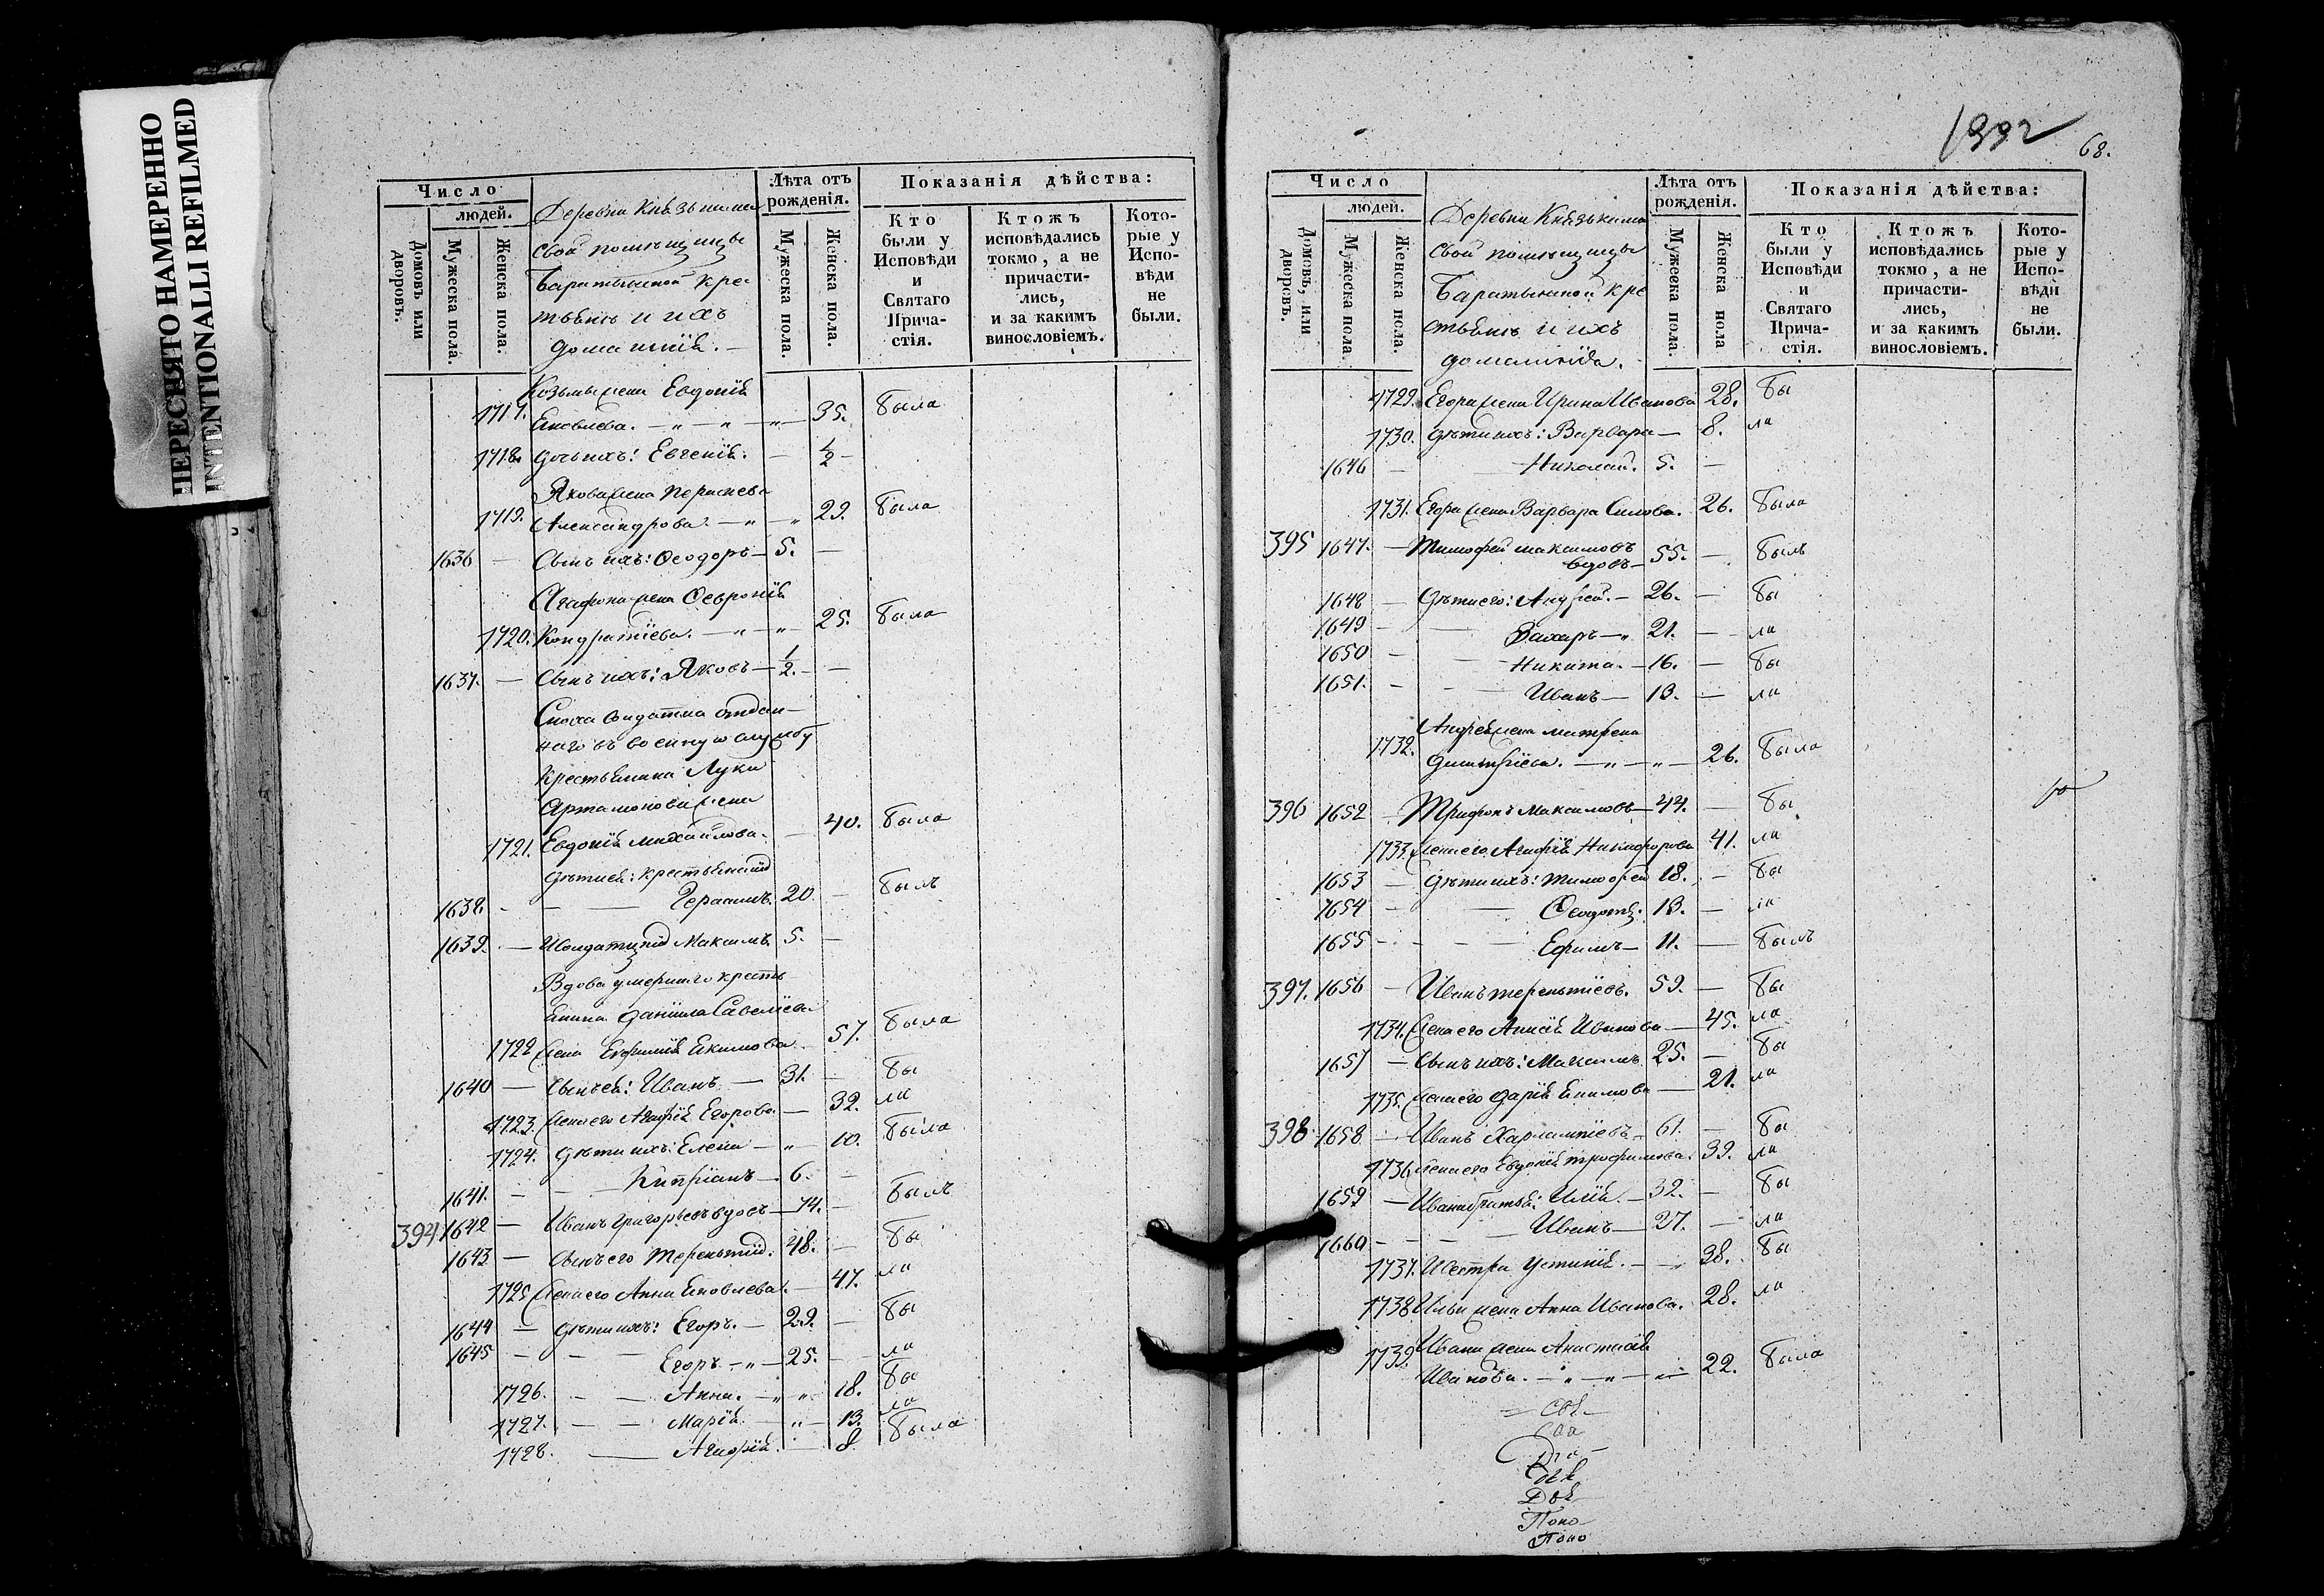 ПЕРЕСНЯТО НАМЕРЕННО
INTENTIONALLI REFILMED
Число
людей.
Домовъ или дворовъ.
Мужеска пола.
Женска пола.
Деревни
свой помѣщицы
Баратынской кре
стьянъ и ихъ
домашнія.
Лѣта отъ рожденія.
Мужеска пола.
Женска пола.
Показанія дѣйства:
Кто были у Исповѣди и Святаго Причастія.
Ктожъ исповѣдались токмо, а не причастились, и за какимъ винословіемъ.
Которые у Исповѣди не были.
Козьмы жена Евдокія
1717. Яковлева. — „ — „ — „ — 35. была
1718. дочь ихъ: Евгенія. — 1/2 —
Якова жена
1719. Александрова. — „ — „ 29. была
1636 — Сынъ ихъ: Ѳеодоръ — 5. —
Агафона жена Ѳевронія
1720. Кондратіева. — „ — „ — 25. была
1637. — Сынъ ихъ: Яковъ — 1/2. — —
Сноха солдатка отдан-
наго въ военную службу
крестьянина Луки
Артамонова жена
1721. Евдокія Михаилова. — 40. была
дѣти ея: крестьянскій
1638. — — Герасимъ. 20. — былъ
1639. — Солдатскій Максимъ 5. —
Вдова умершаго кресть
янина Даніила Савеліева
1722 жена Евфимія Екимова. 57. была
1640 — Сынъ ея: Иванъ — 31. — бы
1723. жена его Агафія Егорова — 32. ла
1724. дѣти ихъ: Елена — „ — 10. была
1641. — — Кипріанъ — 6. —
394 1642 — Иванъ Григорьевъ вдовъ — 74. — былъ
1643 — Сынъ его Терентій. 48. — бы
1725 жена его Анна Яковлева. — 47. ла
1644 — дѣти ихъ: Егоръ. — 29. — бы
1645 — — Егоръ — „ — 25. — ла
1726. — — Анна. — „ „ — 18. бы
1727. — — Марія. — „ — 13. ла
1728. — Агафія. — 8. была
1332
68.
Число
людей.
Домовъ, или дворовъ.
Мужеска пола.
Женска пола.
Деревни
свой помѣщицы
Баратынской кре
стьянъ и ихъ
домашнія.
Лѣта отъ рожденія.
Мужеска пола.
Женска пола
Показанія дѣйства:
Кто были у Исповѣди и Святаго Причастія.
Ктожъ исповѣдались токмо, а не причастились, и за какимъ винословіемъ.
Которые у Исповѣди не были.
1729. Егора жена Ирина Иванова 28. бы
1730. дѣти ихъ: Варвара — 8. ла
1646 — — Николай. 5. —
1731. Егора жена Варвара Силова. 26. была
395 1647. — Тимофей Максимовъ
вдовъ — 55. — былъ
1648 — дѣти его: Андрей. — 26. — бы
1649 — — Захаръ — „ 21. — ла
1650 — — Никита. — 16. — бы
1651. — — Иванъ — 13. — ла
Андрея жена Матрена
1732. Димитріева. — „ — „ — 26. была
396 1652 — Трифонъ Максимовъ — 44. — бы
1733. жена его Агафія Никифорова 41. ла
1653 — дѣти ихъ: Тимофей 18. — бы
1654 — — Ѳеодотъ. 13. — ла
1655 — — Ефимъ — 11. — былъ
397. 1656 — Иванъ Терентіевъ. 59. — бы
1734. жена его Анисія Иванова — 45. ла
1657 — Сынъ ихъ: Максимъ 25. — бы
1735. жена его Дарія Екимова — 21. ла
398 1658 — Иванъ Харлампіевъ — 61. — бы
1736 жена его Евдокія Трофимова. 39. ла
1659 — Ивана братья: Илія. — 32. — бы
1660 — — Иванъ — 27. — ла
1737. Сестра Устинія. — „ 38. бы
1738 Ильи жена Анна Иванова. 28. ла
1739. Ивана жена Анастасія
Иванова. — „ — „ — 22. была
Свя
Дья
Поно
Поно